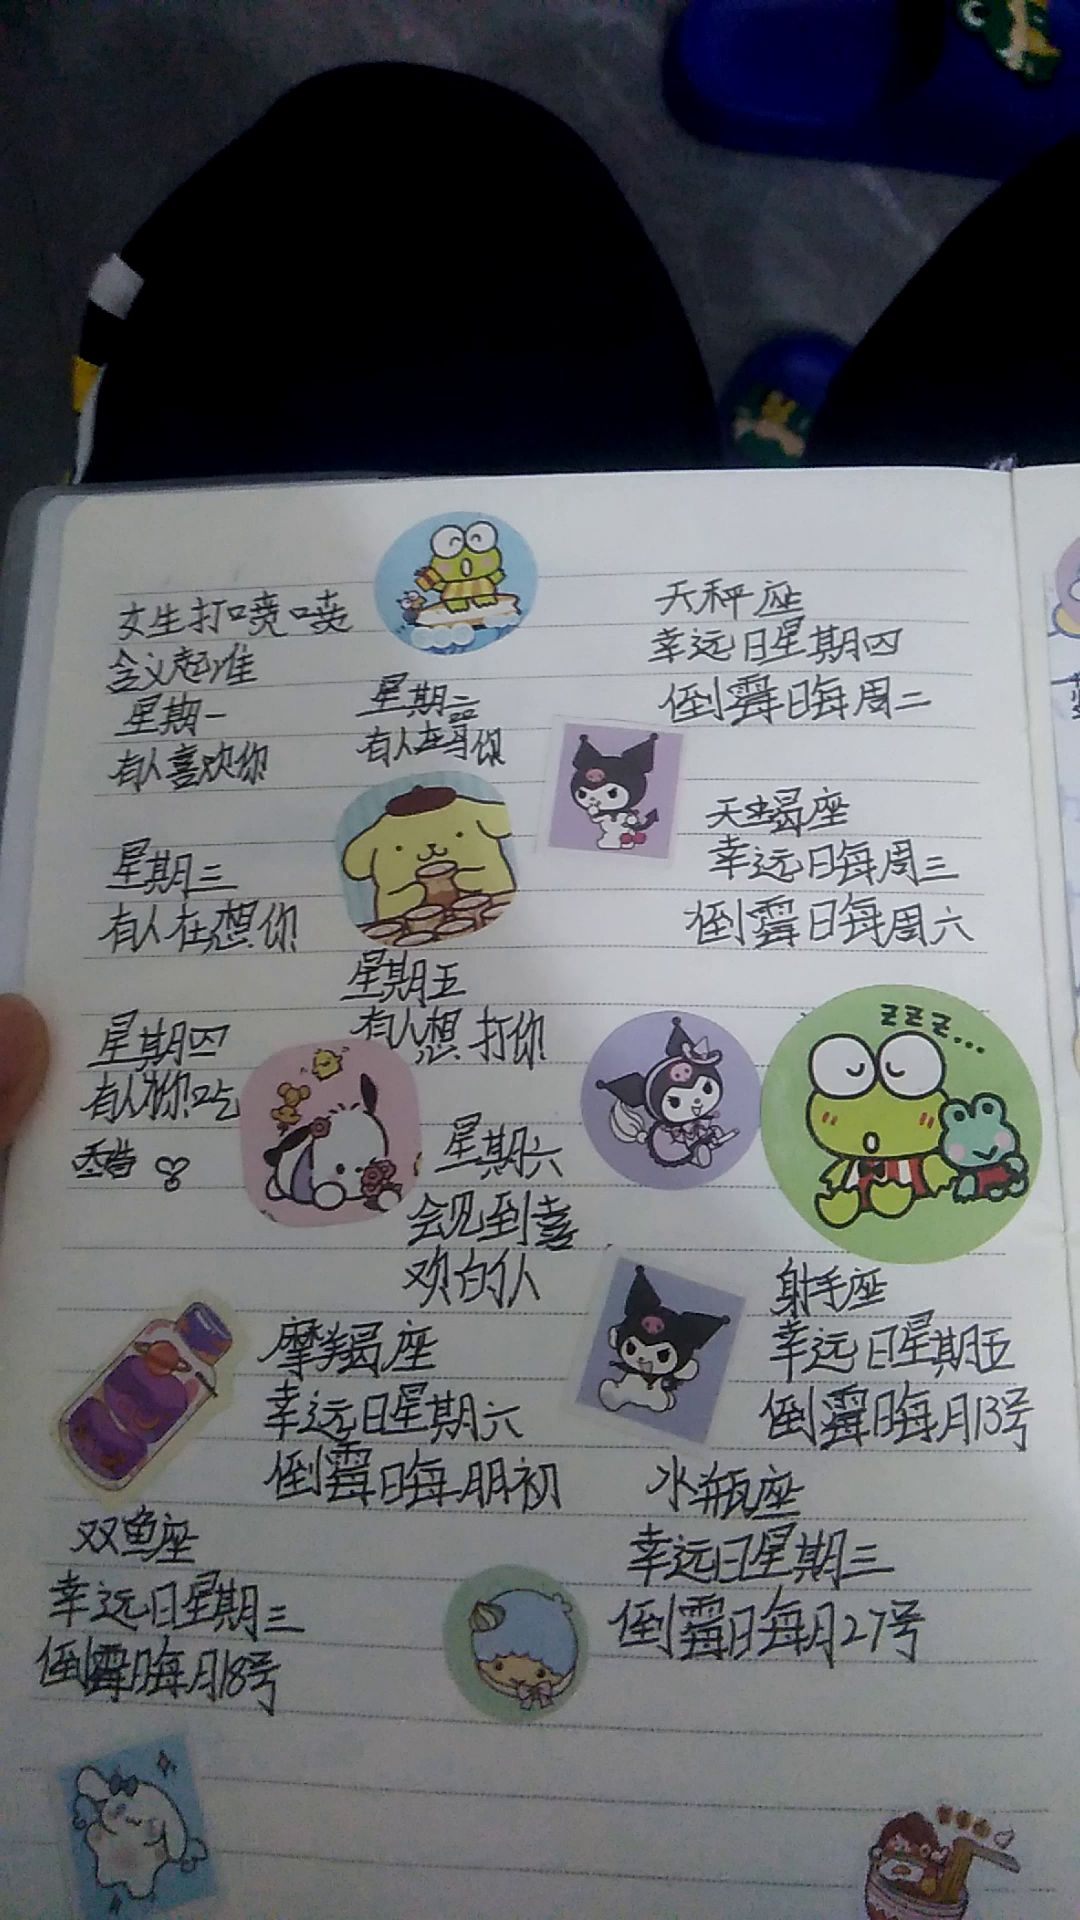 女生打喷嚏
含义超准
星期一
有人喜欢你
星期二
有人在骂你
星期三
有人在想你
星期四
有人为你吃
醋
星期五
有人想打你
星期六
会见到喜
欢的仈
天秤座
幸远日星期四
倒霉日每周二
天蝎座
幸远日每周三
倒霉日每周六
zzz...
射手座
幸远日星期五
倒霉日每月13号
摩羯座
幸远日星期六
倒霉日每月初
水瓶座
幸远日星期三
倒霉日每月27号
双鱼座
幸远日星期三
倒霉日每月18号